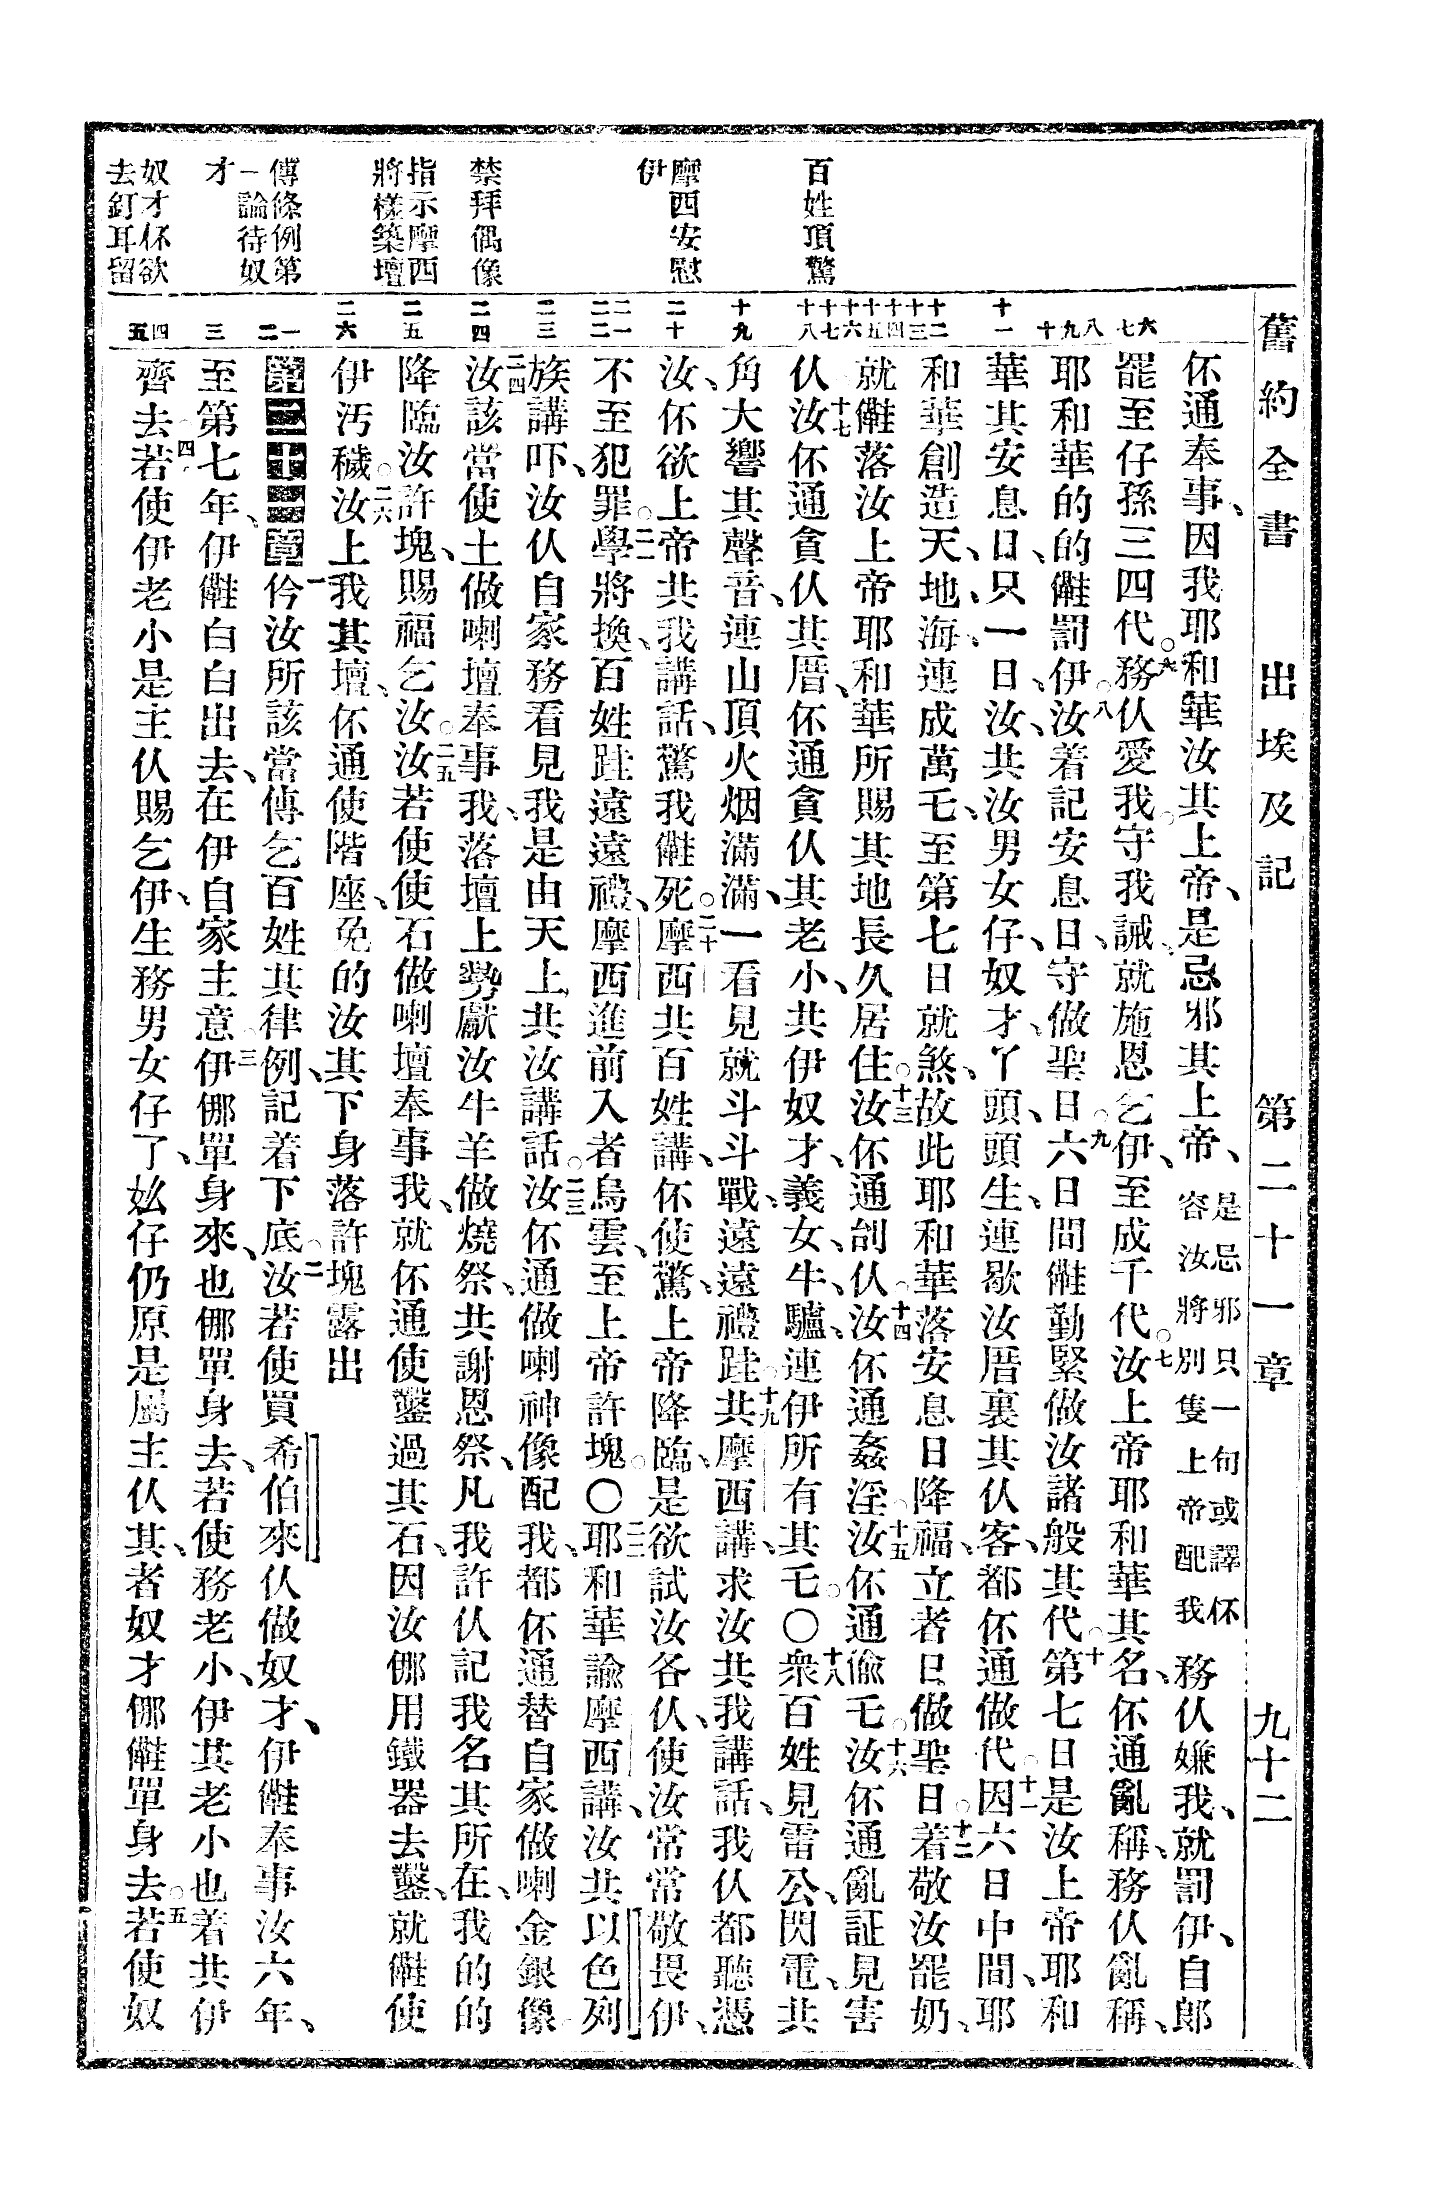 舊約全書　出埃及記　第二十一章　九十二
百姓項驚
摩西安慰
伊
禁拜偶像
指示摩西
將樣築壇
傳條例第
一論待奴
才
奴才伓欲
去釘耳留
伓通奉事、因我耶和華汝其上帝、是忌邪其上帝、是忌邪只一句或譯伓容汝將別隻上帝配我務仈嫌我、就罰伊、自郎
罷至仔孫三四代。六務仈愛我、守我誡、就施恩乞伊、至成千代。七汝上帝耶和華其名、伓通亂稱、務仈亂稱、
耶和華的的㒰罰伊。八汝着記安息日、守做聖日。九六日間㒰勤緊做汝諸般其代。十第七日是汝上帝耶和
華其安息日、只一日、汝共汝男女仔、奴才、丫頭、頭生、連歇汝厝裏其仈客、都伓通做代。十一因六日中間、耶
和華創造天、地、海、連成萬乇、至第七日就煞、故此耶和華落安息日降福、立者日做聖日。十二着敬汝罷奶、
就㒰落汝上帝耶和華所賜其地長久居住。十三汝伓通刣仈。十四汝伓通姦淫。十五汝伓通偷乇。十六汝伓通亂証見害
仈。十七汝伓通貪仈其厝、伓通貪仈其老小、共伊奴才、義女、牛、驢、連伊所有其乇。〇十八衆百姓見雷公、閃電、共
角大響其聲音、連山頂火烟滿滿、一看見就斗斗戰、遠遠禮跬。十九共摩西講、求汝共我講話、我仈都聽憑
汝、伓欲上帝共我講話、驚我㒰死。二十摩西共百姓講、伓使驚、上帝降臨、是欲試汝各仈、使汝常常敬畏伊、
不至犯罪。二一學將換、百姓跬遠遠禮、摩西進前入者烏雲、至上帝許塊。〇二二耶和華諭摩西講、汝共以色列
族講吓、汝仈自家務看見我是由天上共汝講話。二三汝伓通做喇神像配我、都伓通替自家做喇金銀像。
二四汝該當使土做喇壇奉事我、落壇上勢獻汝牛羊做燒祭、共謝恩祭、凡我許仈記我名其所在、我的的
降臨汝許塊、賜福乞汝。二五汝若使使石做喇壇奉事我、就伓通使鑿過其石、因汝㑚用鐵器去鑿、就㒰使
伊汚穢。二六汝上我其壇、伓通使階座、免的汝其下身落許塊露出
第二十一章一仱汝所該當傳乞百姓其律例、記着下底。二汝若使買希伯來仈做奴才、伊㒰奉事汝六年、
至第七年、伊㒰白白出去、在伊自家主意。三伊㑚單身來、也㑚單身去、若使務老小、伊其老小也着共伊
齊去。四若使伊老小是主仈賜乞伊、生務男女仔了、妐仔仍原是屬主仈其、者奴才㑚㒰單身去。五若使奴